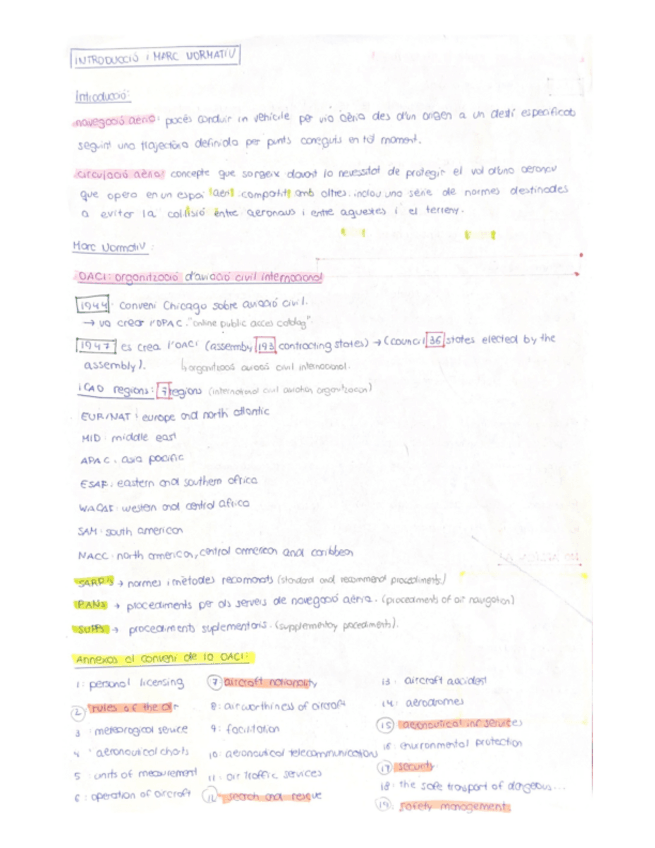 INTRODUCCIÓ i MARC NORMATIU
Introducció:
navegació aèria: procés conduir un vehicle per via aèria des d'un origen a un destí especificat
seguint una trajectòria definida per punts coneguts en tot moment.
circulació aèria: concepte que sorgeix davant la necessitat de protegir el vol d'una aeronau
que opera en un espai aeri compartit amb altres. inclou una sèrie de normes destinades
a evitar la col·lisió entre aeronaus i entre aquestes i el terreny.
Marc Normatiu:
OACI: organització d'aviació civil internacional
1944: Conveni Chicago sobre aviació civil.
→ va crear l'OPAC. "online public acces catalog"
1947 es crea l'OACI (assembly 193 contracting states) → (council 36 states elected by the
assembly). ↳ organització aviació civil internacional.
iCAO regions: 7 regions (international civil aviation organization)
EUR/NAT: europe and north atlantic
MID: middle east
APAC: asia pacific
ESAF: eastern and southern africa
WACAF: western and central africa
SAM: south american
NACC: north american, central american and caribbean
SARP's → normes i mètodes recomanats (standard and recommend procediments)
PANs → procediments per als serveis de navegació aèria. (procediments of air navigation)
SUPPs → procediments suplementaris. (supplementary procediments).
Annexos al conveni de la OACI:
1: personal licensing
2: rules of the air
3: meteorogical service
4: aeronautical charts
5: units of measurement
6: operation of aircraft
7: aircraft nationality
8: airworthiness of aircraft
9: facilitation
10: aeronautical telecommunications
11: air traffic services
12: search and rescue
13: aircraft accident
14: aerodromes
15: aeronautical inf services
16: environmental protection
17: security
18: the safe trasport of dangerous...
19: safety management